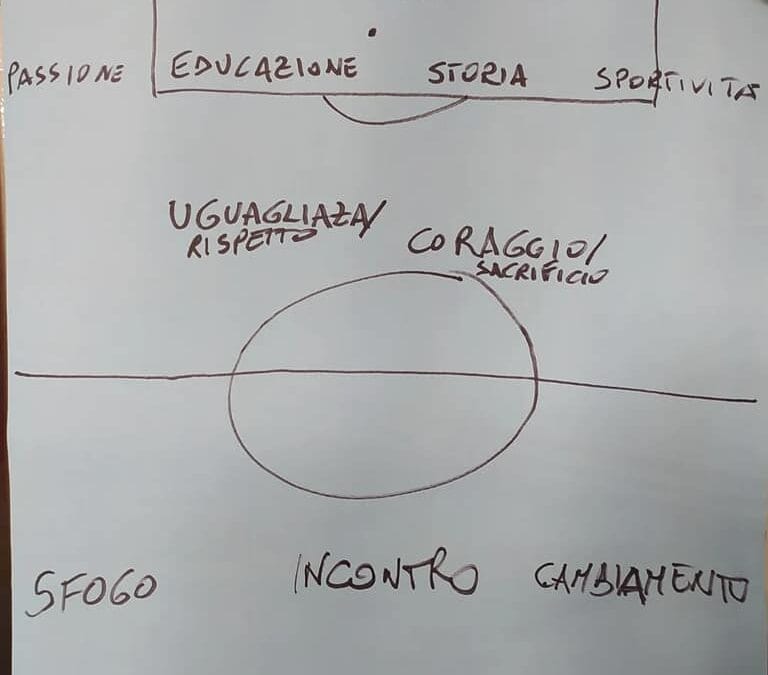 PASSIONE EDUCAZIONE STORIA SPORTIVITA
UGUAGLIAZA/
RISPETTO
CORAGGIO/
SACRIFICIO
SFOGO INCONTRO CAMBIAMENTO